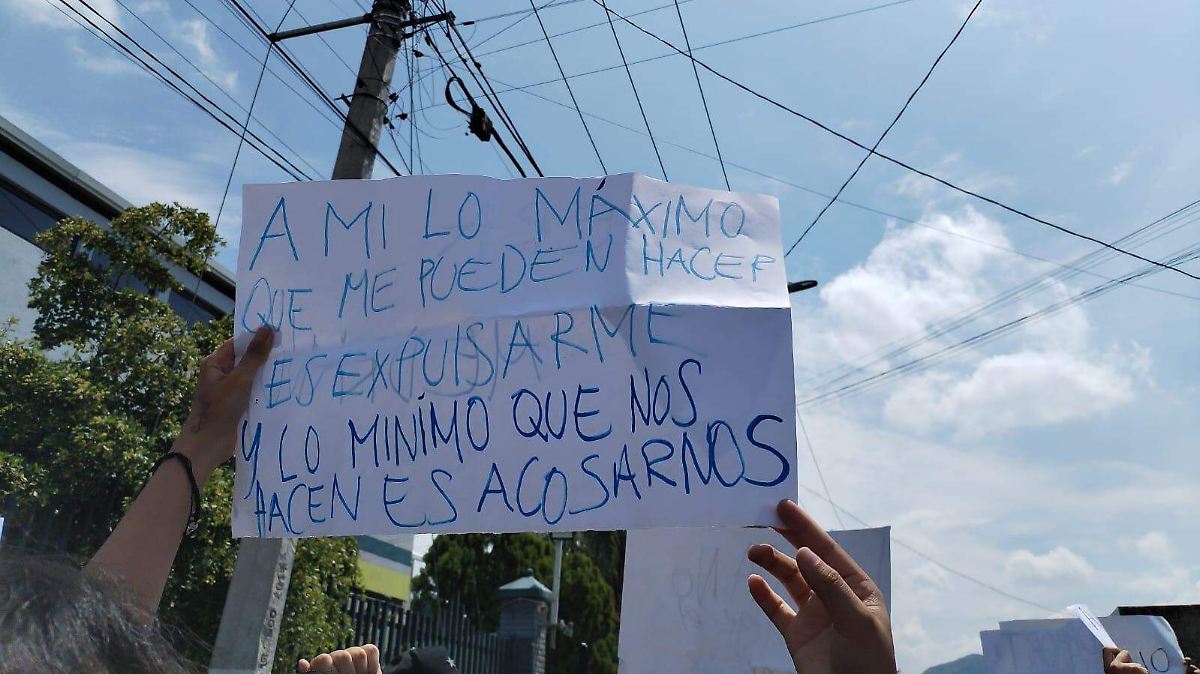 A MI LO MÁXIMO
QUE ME PUEDEN HACER
ES EXPULSARME
Y LO MINÍMO QUE NOS
HACEN ES ACOSARNOS